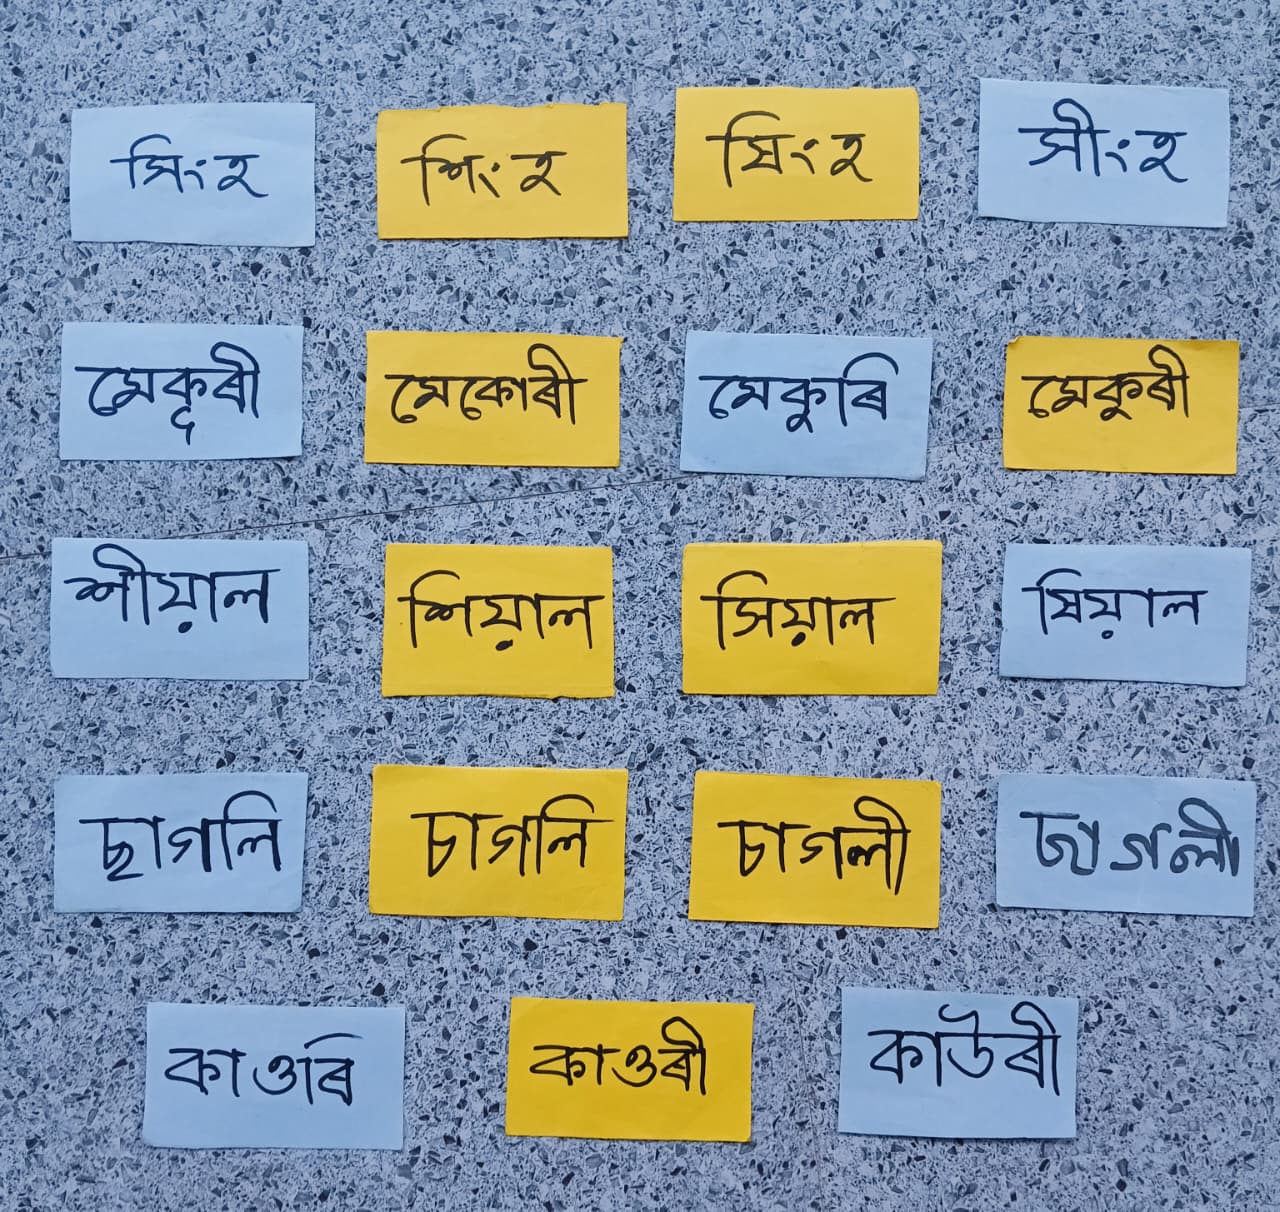 সিংহ শিংহ ষিংহ সীংহ
মেকূৰী মেকোৰী মেকুৰি মেকুৰী
শীয়াল শিয়াল সিয়াল ষিয়াল
ছাগলি চাগলি চাগলী ছাগলী
কাওৰি কাওৰী কাউৰী